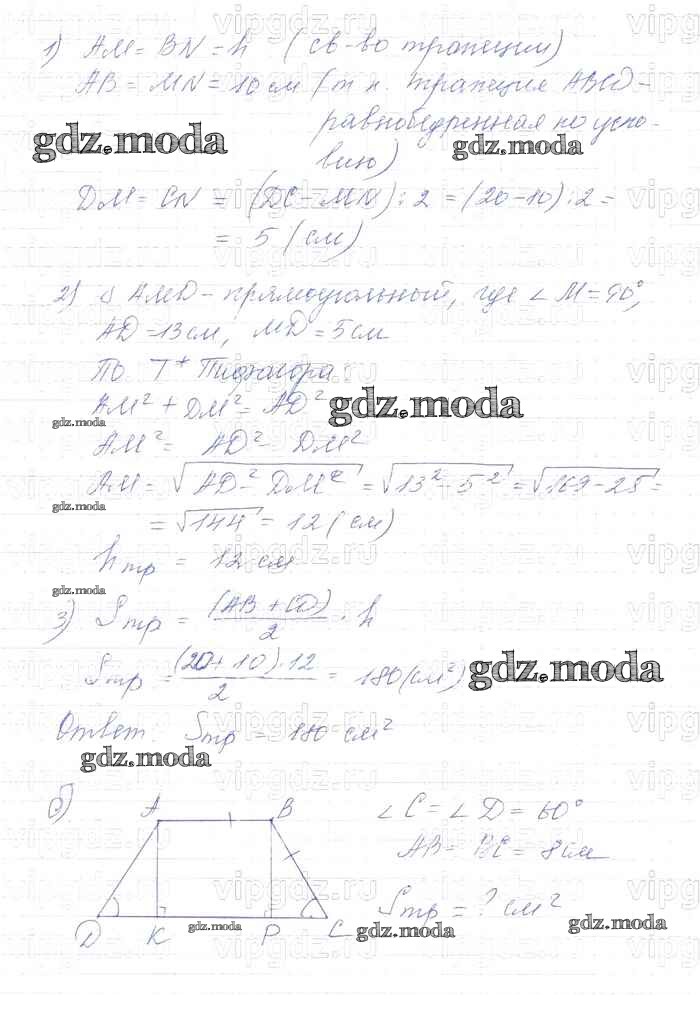 1) AM = BN = h (св-во трапеции)
AB = MN = 10 см (т.к. трапеция ABCD -
равнобедренная по усло-
вию)
gdz.moda
gdz.moda
DM = CN = (DC - MN) : 2 = (20-10) : 2 =
= 5 (см)
2) △ AMD - прямоугольный, где ∠ M = 90°,
AD = 13 см, MD = 5 см
По Т. Пифагора:
AM² + DM² = AD²
gdz.moda
gdz.moda
AM² = AD² - DM²
AM = √AD² - DM² = √13² - 5² = √169 - 25 =
gdz.moda
= √144 = 12 (см)
hтр = 12 см
gdz.moda
3) Sтр = (AB + CD)/2 · h
Sтр = (20 + 10) · 12/2 = 180 (см²)
gdz.moda
Ответ: Sтр = 180 см²
gdz.moda
б)
A B
∠ C = ∠ D = 60°
AB = BC = 8 см
Sтр = ? см²
D K P C
gdz.moda
gdz.moda
gdz.moda
vipgdz.ru